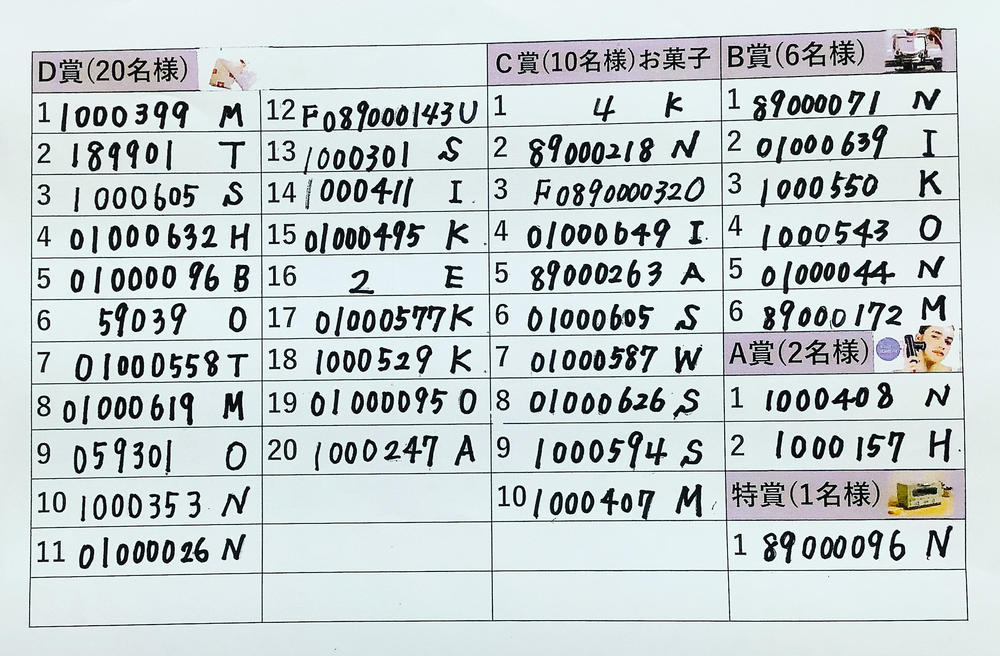 D賞(20名様)
1 1000399 M
2 189901 T
3 1000605 S
4 01000632 H
5 01000096 B
6 59039 O
7 01000558 T
8 01000619 M
9 059301 O
10 1000353 N
11 01000026 N
12 F089000143U
13 1000301 S
14 1000411 I
15 01000495 K
16 2 E
17 01000577 K
18 1000529 K
19 01000095 O
20 1000247 A
C賞(10名様)お菓子
1 4 K
2 89000218 N
3 F089000032O
4 01000649 I
5 89000263 A
6 01000605 S
7 01000587 W
8 01000626 S
9 1000594 S
10 1000407 M
B賞(6名様)
1 89000071 N
2 01000639 I
3 1000550 K
4 1000543 O
5 01000044 N
6 89000172 M
A賞(2名様)
1 1000408 N
2 1000157 H
特賞(1名様)
1 89000096 N